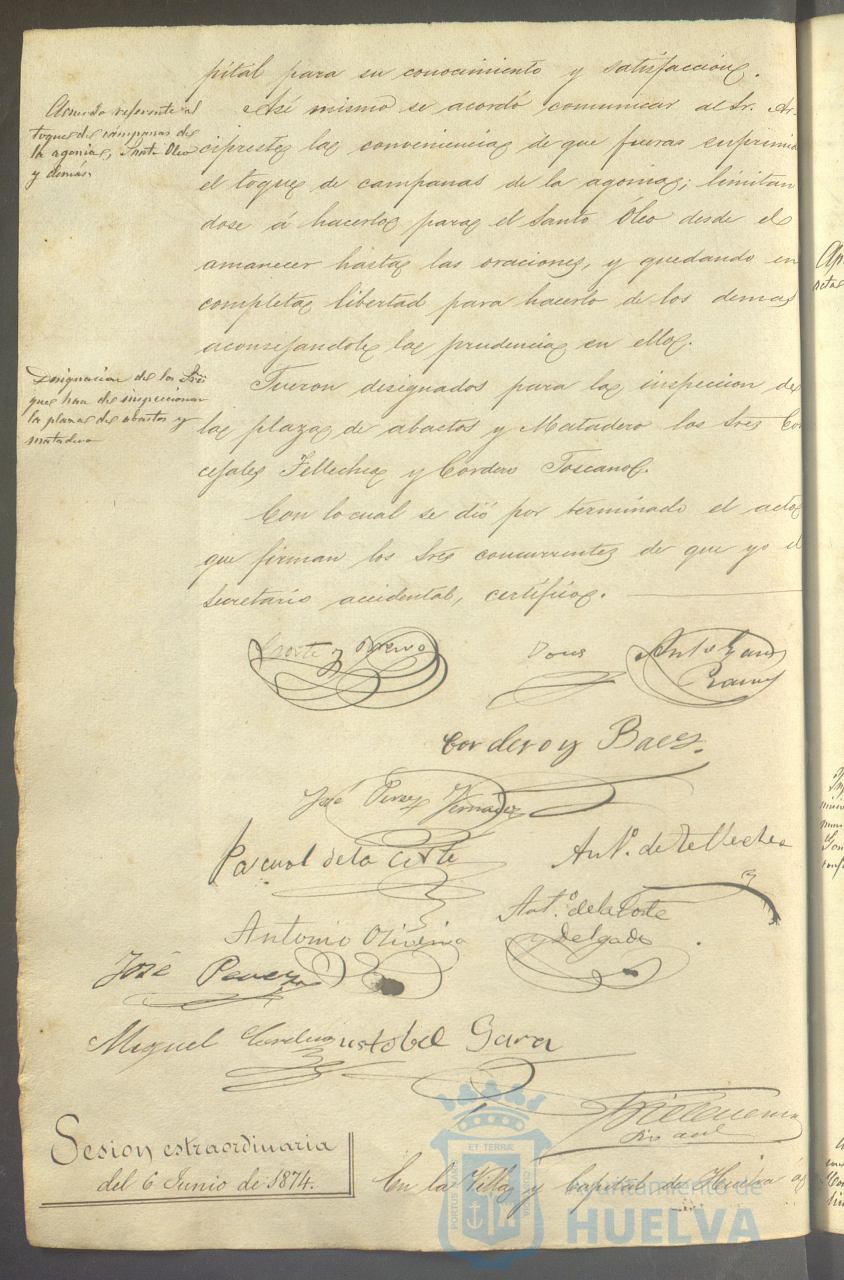 pital para su conocimiento y satisfaccion.
Acuerdo referente al
toque de campanas de
la agonia, Santo Oleo
y demás.
Asi mismo se acordó comunicar al Sr. Ar-
cipreste la conveniencia de que fuera suprimi
el toque de campanas de la agonia; limitan
dose á hacerlo para el Santo Óleo desde el
amanecer hasta las oraciones, y quedando en
completa libertad para hacerlo de los demas
aconsejandole la prudencia en ello.
Designacion de los Sres
que han de inspeccionar
la plaza de abastos y
matadero
Fueron designados para la inspeccion de
la plaza de abastos y Matadero los Sres Con
cejales Tellechea y Cordero Toscano.
Con lo cual se dió por terminado el acto
que firman los Sres concurrentes de que yo el
Secretario accidental, certifico.
Cordero y Baez.
José Perez
Pascual de la Corte
Ant.º de Tellechea
Antonio Oliveira
Ant.º de la Corte
y Delgado
José Perez
Miguel
Gara
Sesion estraordinaria
del 6 Junio de 1874.
En la Villa y Capital de Huelva á
PORTUS
ET TERRÆ
Ayuntamiento de
HUELVA